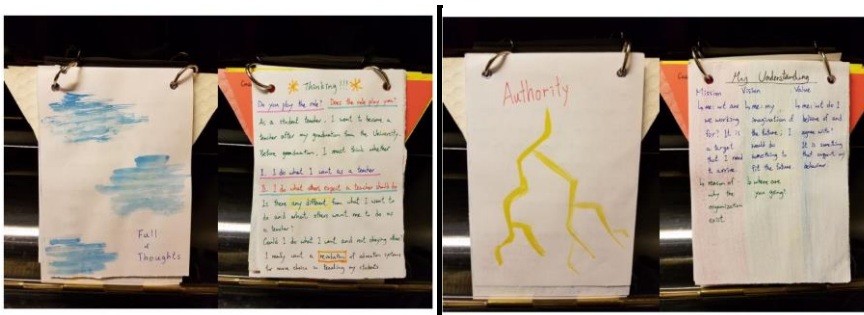 Full
of
Thoughts
Thinking!!!
Do you play the role? Does the role play you?
As a student teacher, I want to become a
teacher after my graduation from the University.
Before graduation, I must think whether
I. I do what I want as a teacher
II. I do what others expect a teacher should do
Is there any different from what I want to
do and what others want me to do as
a teacher?
Could I do what I want and not obeying others?
I really want a revolution of education systems
for more choice in teaching my students
Authority
My Understanding
Mission
↳ me: wt are
we working
for? It is
a target
that I need
to achieve
↳ reason of
why the
organization
exist.
Vision
↳ me: my
imagination of
the future; I
would do
something to
fit the future
↳ where are
you going?
Value
↳ me: wt do I
believe of and
agree with?
It is something
that supports my
behaviour